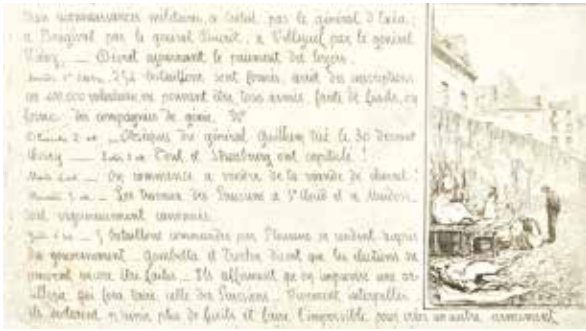 trois reconnaissances militaires, à Créteil par le général d'Exéa ;
à Bezignat par le général Ducrot, à Villejuif par le général
Vinoy. — Décret ajournant le paiement des loyers.
bataillons sont formés, arrêt des inscriptions
400.000 volontaires ne pouvant être tous armés, faute de fusils, on
forme des compagnies de génie.
Dimanche 2 — Obsèques du général Guilhem tué le 30 devant
Chevilly — Toul et Strasbourg ont capitulé !
On commence à vendre de la viande de cheval !
Les travaux des Prussiens à St Cloud et à Meudon
sont vigoureusement canonnés
5 bataillons commandés par Flourens se rendent auprès
du gouvernement. Gambetta et Trochu disent que les élections ne
peuvent encore être faites. Ils affirment qu'on improvise une ar-
tillerie qui fera taire celle des Prussiens. Vivement interpellés
ils plus de forts et faire l'impossible pour créer un autre armement